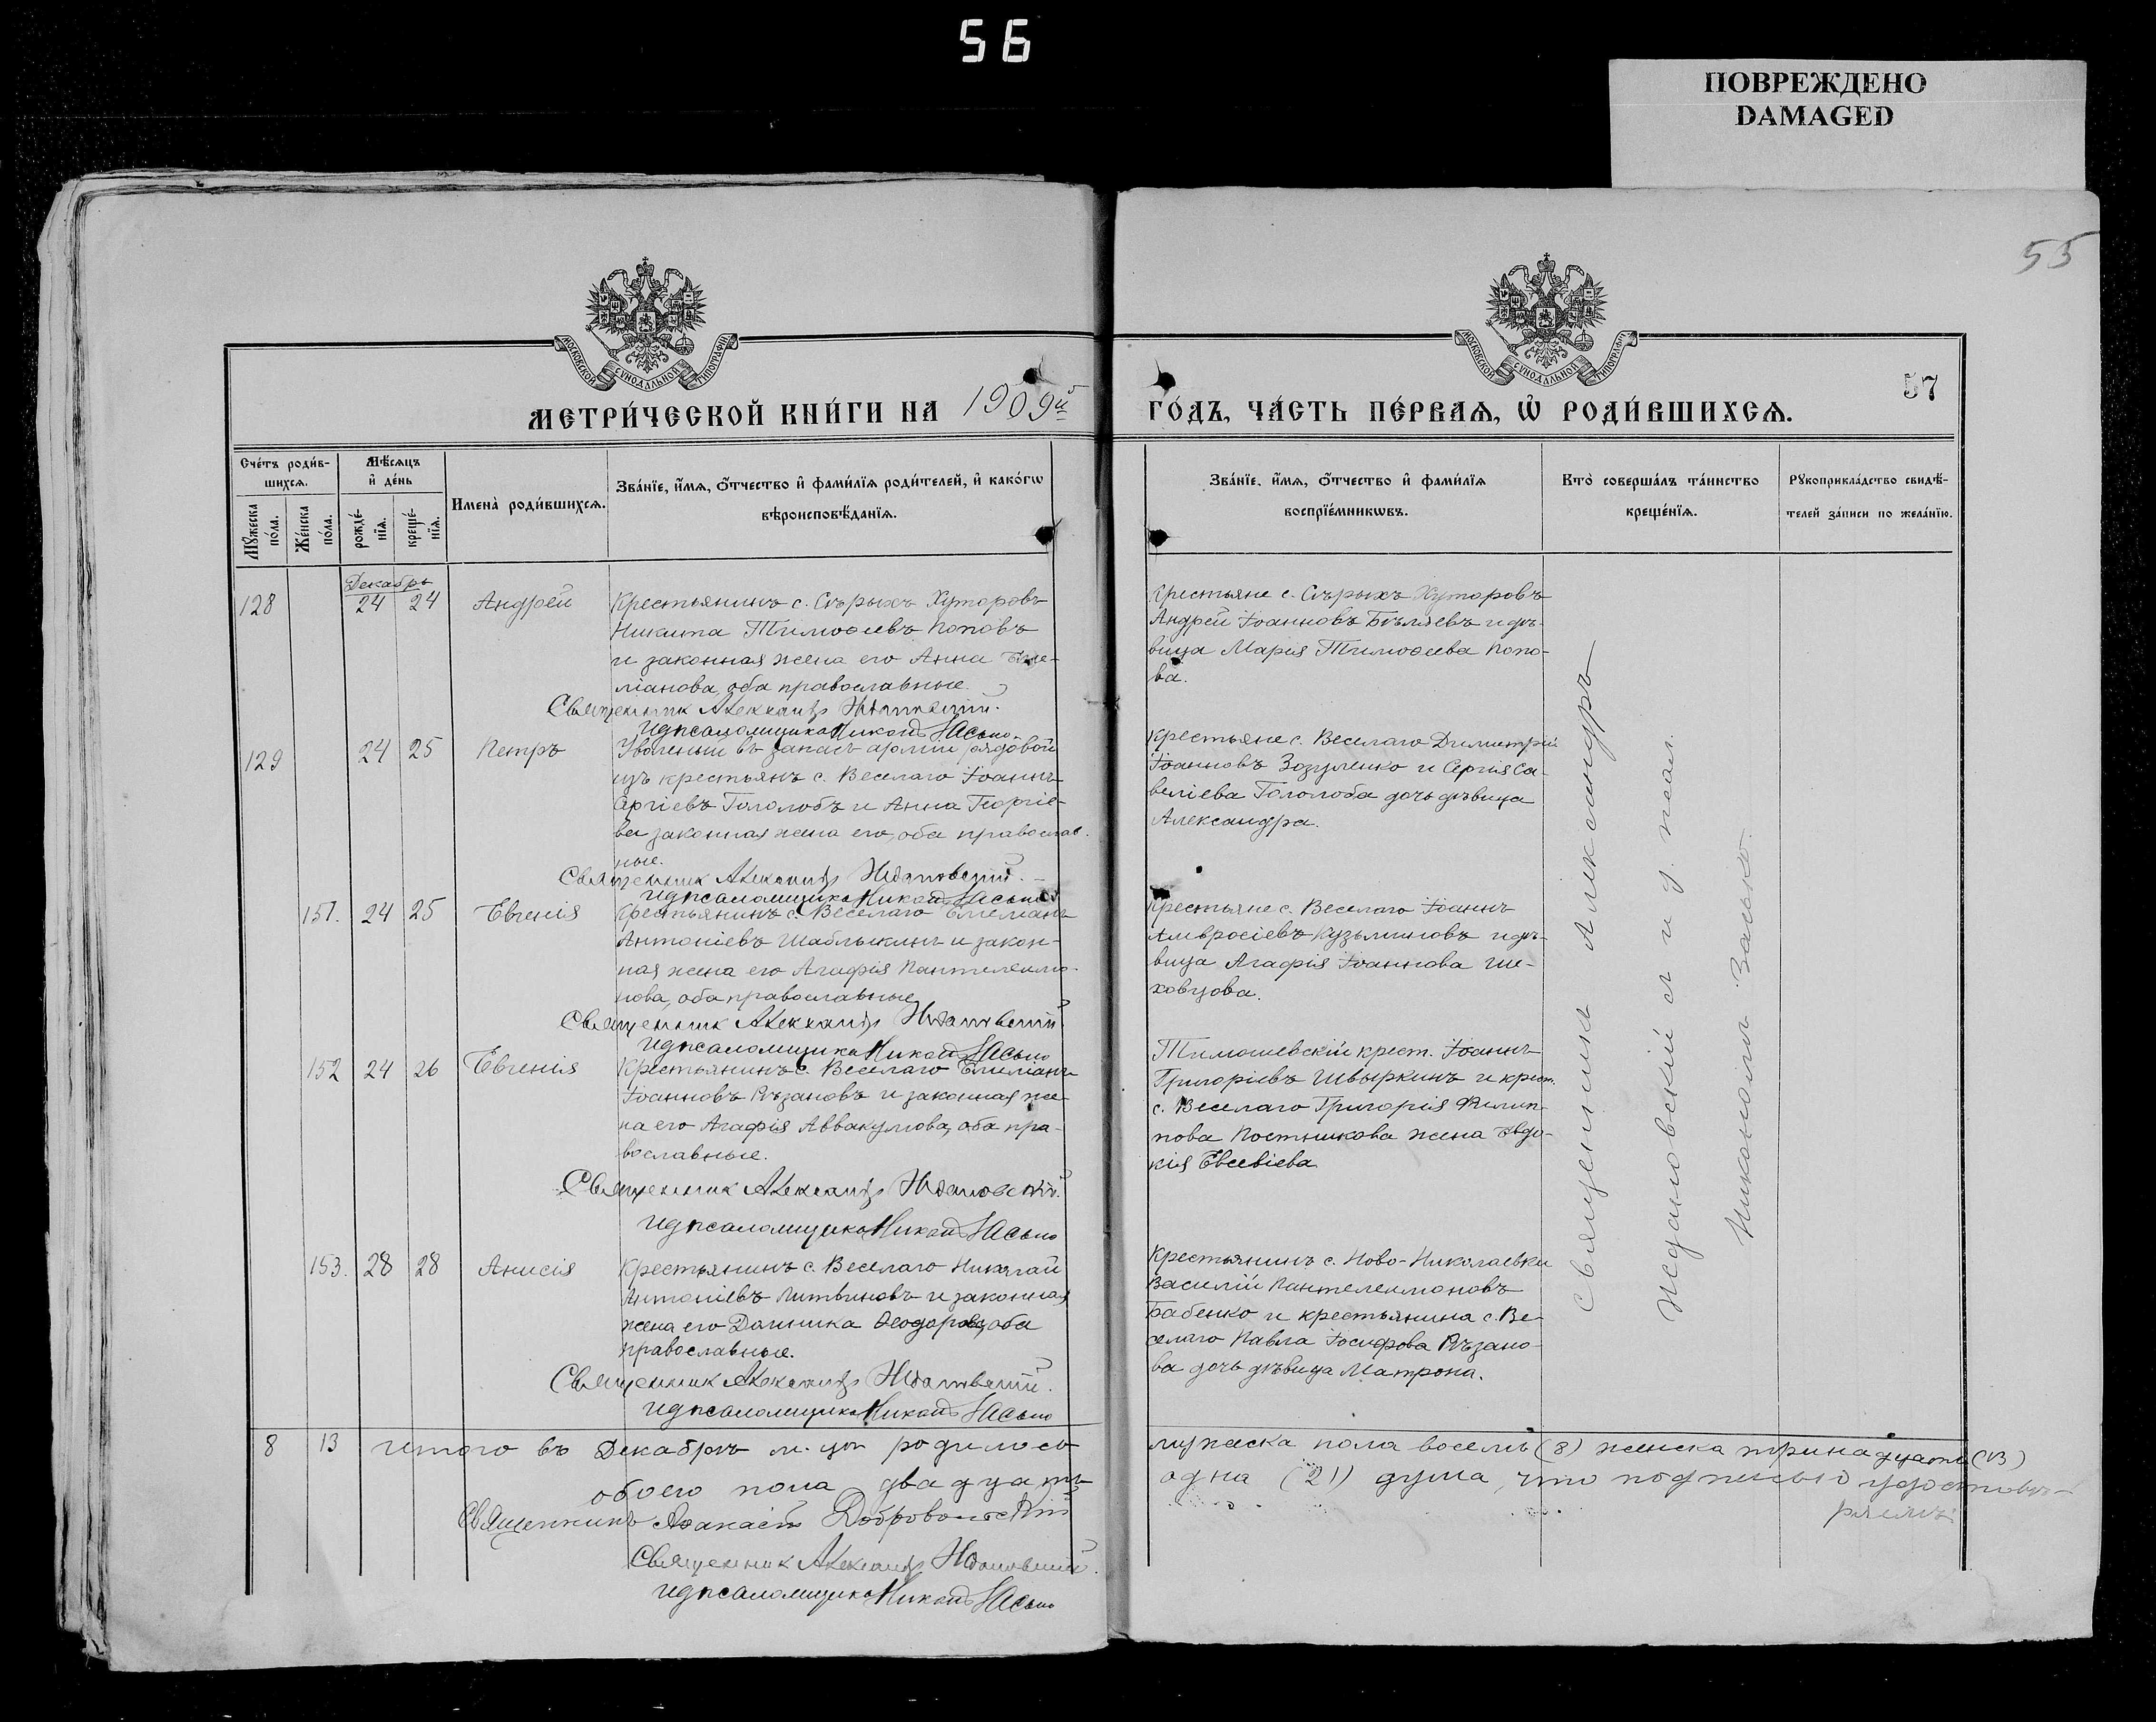 56
ПОВРЕЖДЕНО
DAMAGED
55
57
МОСКОВСКОЙ СѴНОДАЛЬНОЙ ТИПОГРАФІИ
МОСКОВСКОЙ СѴНОДАЛЬНОЙ ТИПОГРАФІИ
МЕТРИ́ЧЕСКОЙ КНИ́ГИ НА 1909й
ГО́ДЪ, ЧА́СТЬ ПЕ́РВАѦ, Ѽ РОДИ́ВШИХСѦ.
Сче́тъ роди́в-
шихсѧ.
Мꙋжеска по́ла.
Же́нска по́ла.
Мѣ́сѧцъ
и҆ де́нь
рожде́-
нїѧ.
креще́-
нїѧ.
Имена̀ роди́вшихсѧ.
Зва́нїе, и҆́мѧ, ѻ҆́тчество и҆ фами́лїѧ роди́телей, и҆ како́гѡ
вѣроисповѣ́данїѧ.
Зва́нїе, и҆́мѧ, ѻ҆́тчество и҆ фами́лїѧ
воспрїе́мникѡвъ.
Кто̀ соверша́лъ та́инство
креще́нїѧ.
Рꙋкоприкла́дство свидѣ́-
телей за́писи по жела́нїю.
Декабрь
128 24 24 Андрей
Крестьянинъ с. Сѣрыхъ Хуторовъ
Никита Тимоѳеевъ Поповъ
и законная жена его Анна Еме-
ліанова, оба православные.
Священник Александр Ждановский.
И д псаломщика Никонъ Засько
Крестьяне с. Сѣрыхъ Хуторовъ
Андрей Іоанновъ Бѣляевъ и дѣ-
вица Марія Тимоѳеева Попо-
ва.
129 24 25 Петръ
Уволеный въ запасъ арміи рядовой
изъ крестьянъ с. Веселаго Іоаннъ
Сергіевъ Гололобъ и Анна Георгіе-
ва законная жена его, оба православ-
ные.
Священник Александр Ждановский.
И д псаломщика Никонъ Засько
Крестьяне с. Веселаго Димитрій
Іоанновъ Зозуленко и Сергія Са-
веліева Гололоба дочь дѣвица
Александра.
151. 24 25 Евгенія
Крестьянинъ с. Веселаго Емеліанъ
Антоніевъ Шаблыкинъ и закон-
ная жена его Агафія Пантелеимо-
нова, оба православные
Священник Александр Ждановский
И д псаломщика Никонъ Засько
Крестьяне с. Веселаго Іоаннъ
Амвросіевъ Кузьминовъ и дѣ-
вица Агафія Іоаннова Ше-
ховцова.
152 24 26 Евгенія
Крестьянинъ с. Веселаго Емеліанъ
Іоанновъ Рѣзановъ и законная же-
на его Агафія Аввакумова, оба пра-
вославные.
Священник Александр Ждановский.
И д псаломщика Никонъ Засько
Тимошевскій крест. Іоаннъ
Григоріевъ Швыркинъ и крест.
с. Веселаго Григорія Филип-
пова Постникова жена Евдо-
кія Евсевіева
153. 28 28 Анисія
Крестьянинъ с. Веселаго Николай
Антоніевъ Литвиновъ и законная
жена его Домника Ѳеодорова, оба
православные.
Священник Александр Ждановский.
И д псаломщика Никонъ Засько
Крестьянинъ с. Ново-Николаевки
Василій Пантелеимоновъ
Бабенко и крестьянина с. Ве-
селаго Павла Іосифова Рѣзано-
ва дочь дѣвица Матрона.
Священникъ Александръ
Ждановскій с и д. псал.
Никономъ Засько.
8 13 Итого въ Декабрѣ м-цѣ родилось
мужеска пола восемь (8) женска тринадцать (13)
обоего пола двадцать
одна (21) душа, что подписью удостовѣ-
ряемъ:
Священникъ Аѳанасій Добровольскій
Священник Александр Ждановский.
И д псаломщика Никонъ Засько